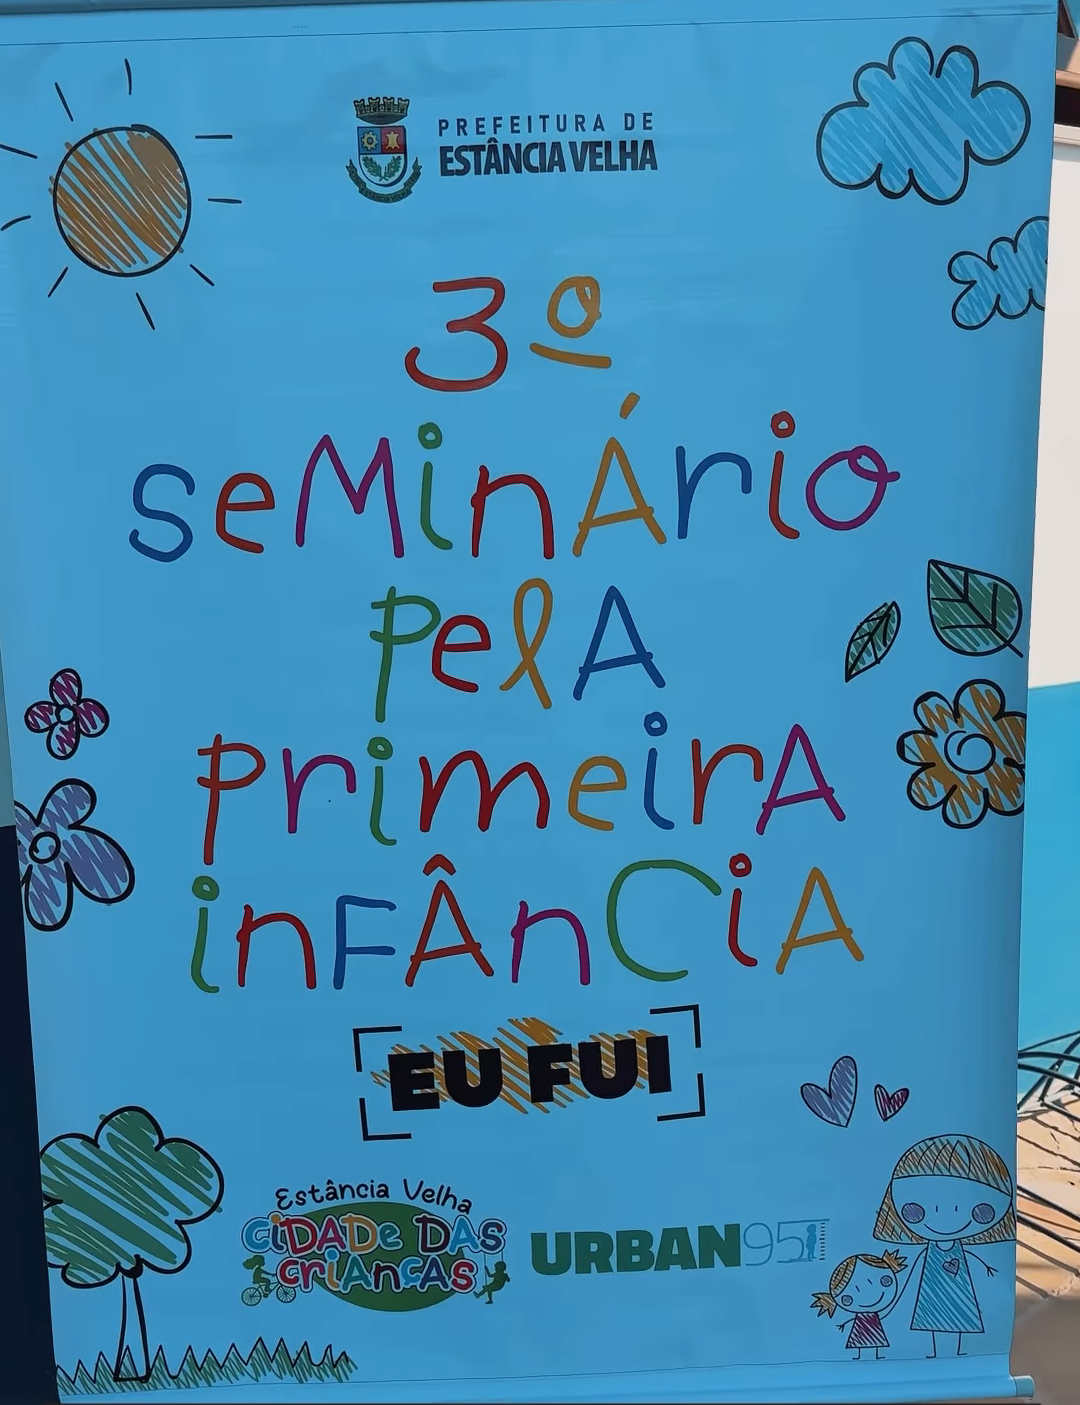 PREFEITURA DE
ESTÂNCIA VELHA
3º
seMinÁrio
pelA
primeirA
inFÂnCiA
EU FUI
Estância Velha
CiDADe DAS
criAnçAS
URBAN95